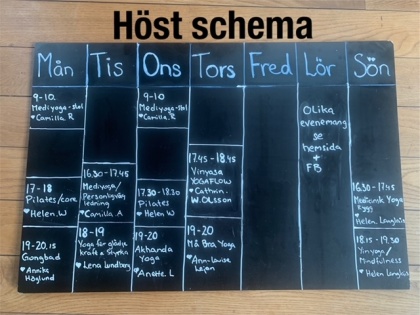 Höst schema
Mån
Tis
Ons
Tors
Fred
Lör
Sön
9-10.
Mediyoga-stol
Camilla. R
17-18
Pilates/core
Helen. W
19-20.15
Gongbad
Annika
Höglund
16.30 - 17.45
Mediyoga/
Personligväg
ledning
Camilla. A
18-19
Yoga för glädje
kraft & Styrka
Lena Lundberg
9-10
Mediyoga-stol
Camilla. R
17.30 - 18.30
Pilates
Helen W
19-20
Akhanda
Yoga
Anette. L
17.45 - 18.45
Vinyasa
YOGAFLOW
Cathrin.
W. Olsson
19-20
Må Bra Yoga
Ann-Louise
Olika
evenemang
se
hemsida
+
FB
16.30 - 17.45
Medicinsk Yoga
Rygg
Helen
18.15 - 19.30
Yinyoga/
Mindfulness
Helen